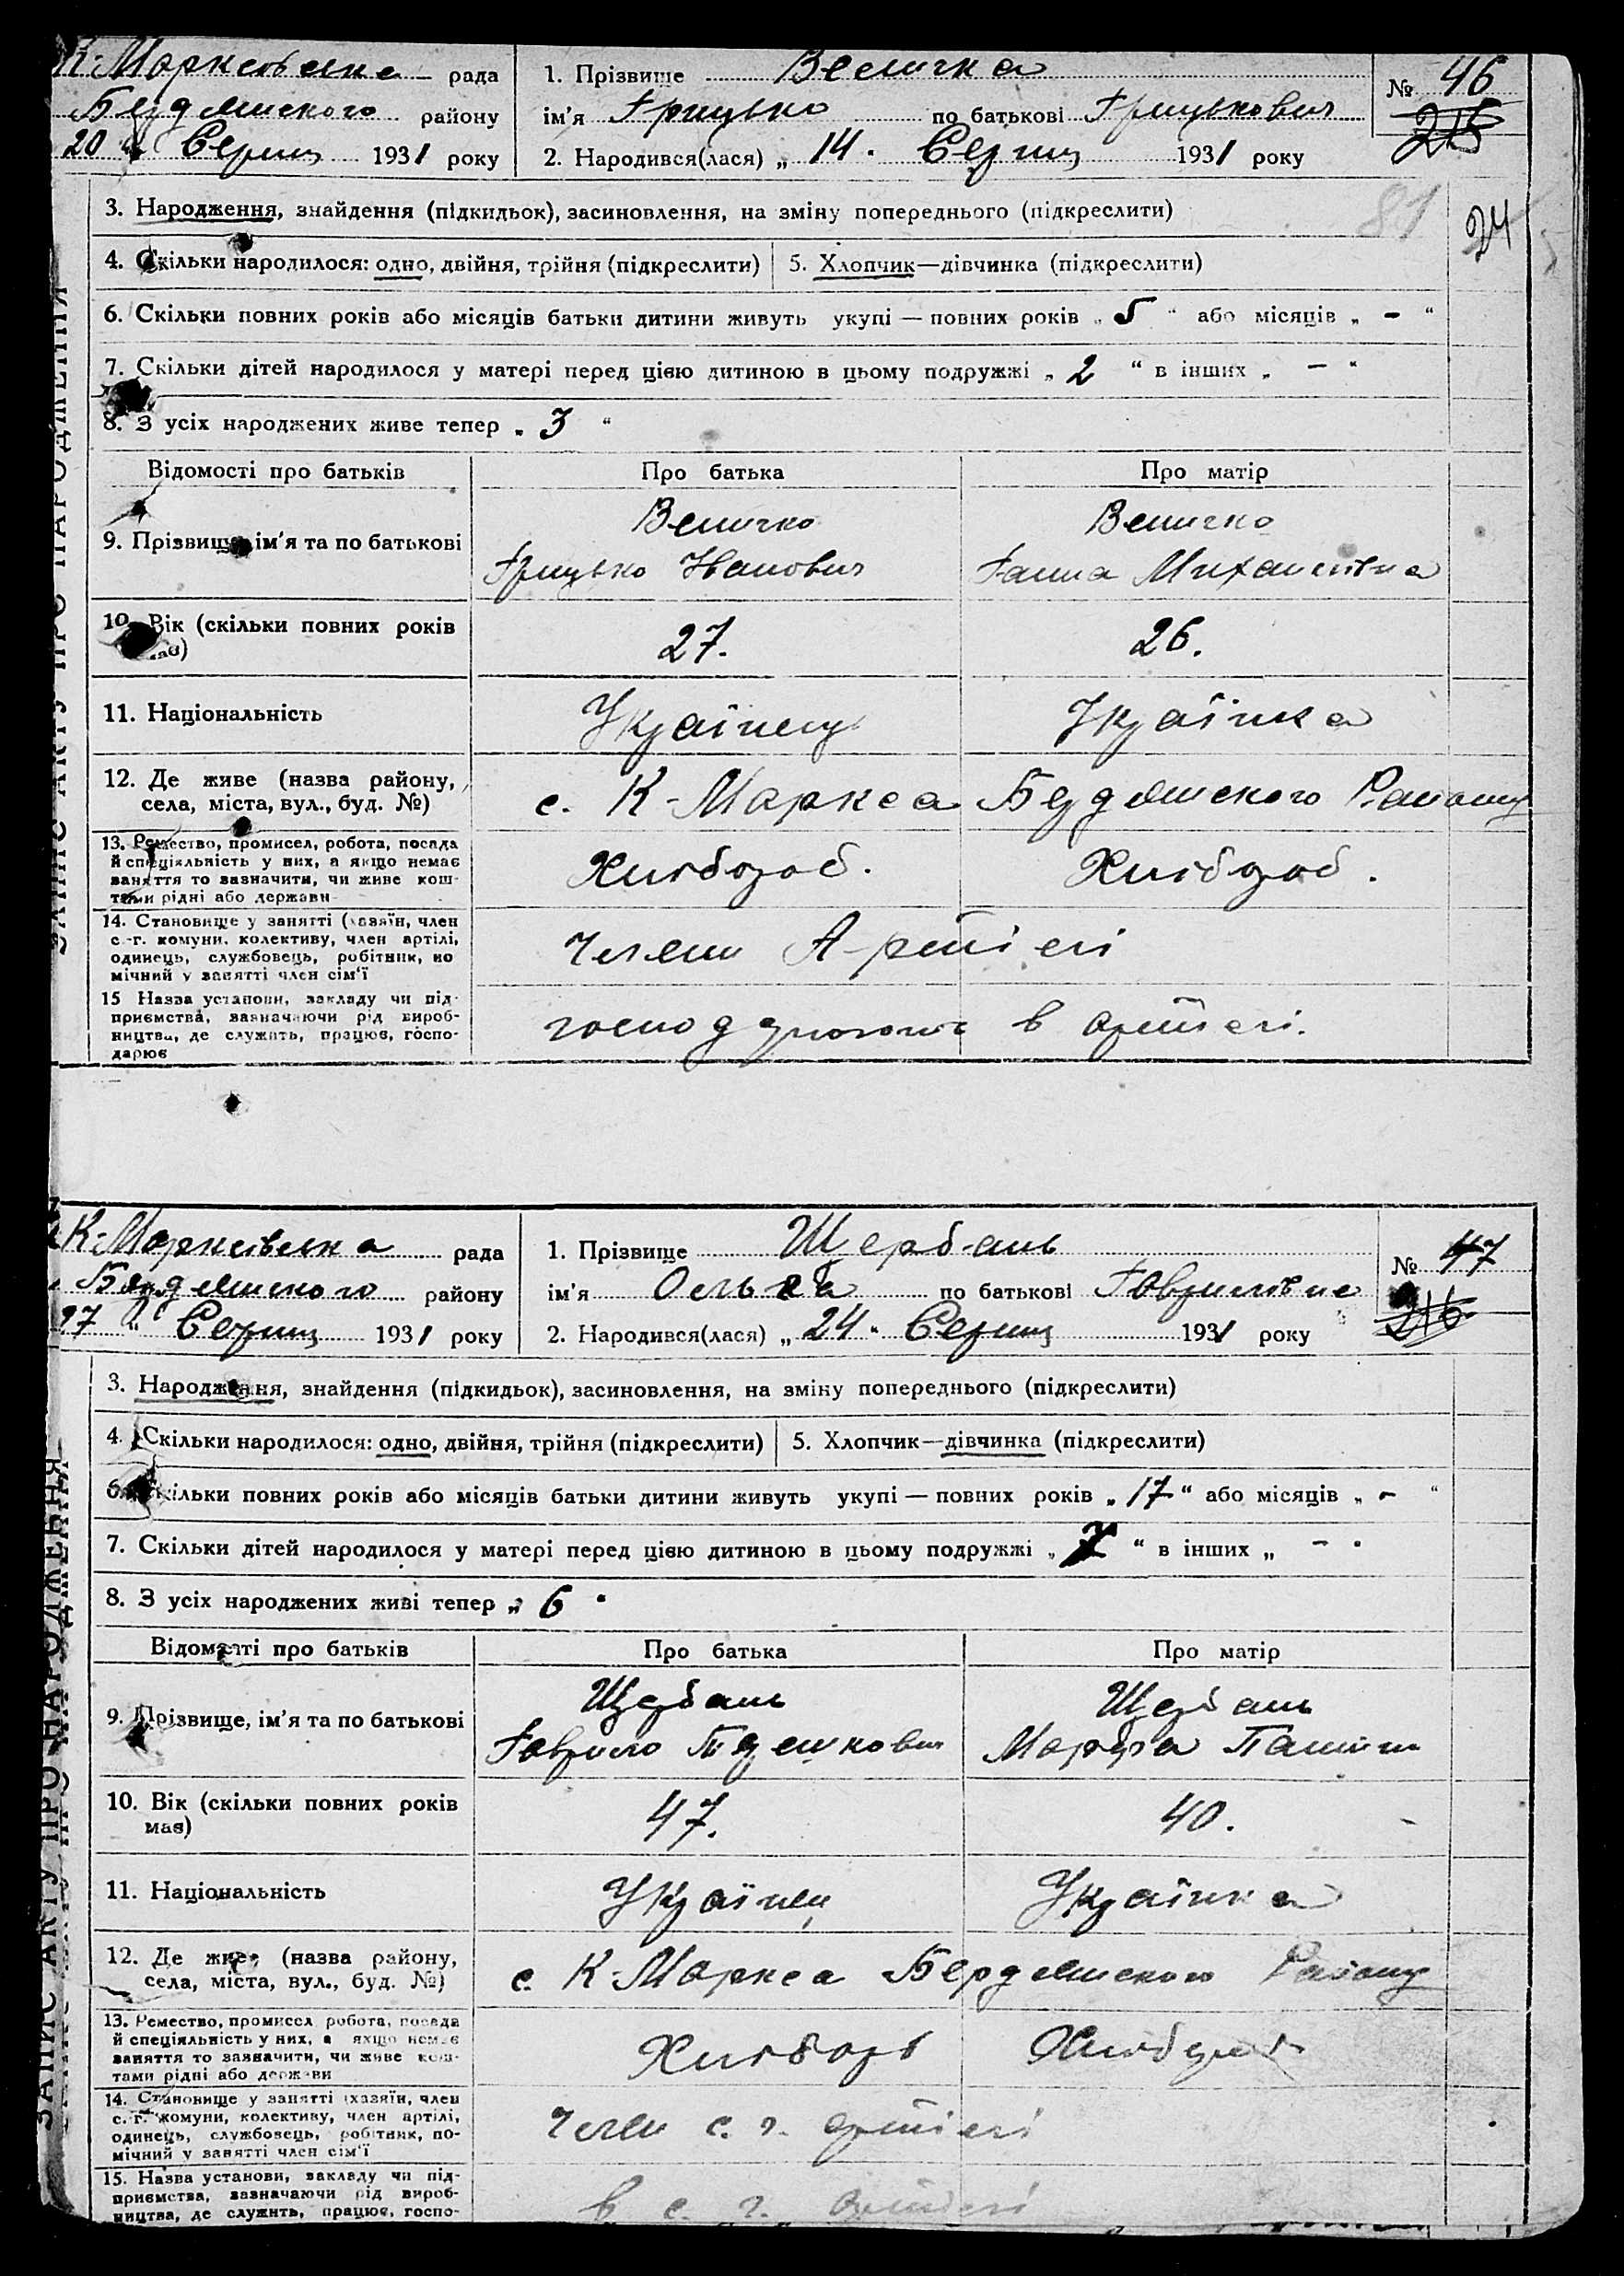 К-Марксівська рада
Бердянського району
20 " Серпня 1931 року
1. Прізвище Величко
ім'я Грицько по батькові Грицькович
2. Народився(лася) „ 14 " Серпня 1931 року
№ 46
215
3. Народження, знайдення (підкидьок), засиновлення, на зміну попереднього (підкреслити)
81
24
4. Скільки народилося: одно, двійня, трійня (підкреслити) 5. Хлопчик—дівчинка (підкреслити)
6. Скільки повних років або місяців батьки дитини живуть укупі — повних років „ 5 “ або місяців „ - “
7. Скільки дітей народилося у матері перед цією дитиною в цьому подружжі „ 2 “ в інших „ - “
8. З усіх народжених живе тепер „ 3 “
Відомості про батьків Про батька Про матір
Величко Величко
9. Прізвище, ім'я та по батькові Грицько Іванович Ганна Михайлівна
10. Вік (скільки повних років має) 27. 26.
11. Національність Українець Українка
12. Де живе (назва району,
села, міста, вул., буд. №) с. К-Маркса Бердянського Району
13. Ремество, промисел, робота, посада
й спеціяльність у них, а якщо немає
заняття то зазначити, чи живе кош-
тами рідні або держави
Хлібороб. Хлібороб.
14. Становище у занятті (хазяїн, член
с.-г. комуни, колективу, член артілі,
одинець, службовець, робітник, по
мічний у занятті член сім'ї
Члени Артілі
15 Назва установи, закладу чи під-
приємства, зазначаючи рід вироб-
ництва, де служить, працює, госпо-
дарює
в артілі.
К-Марксівська рада
Бердянського району
27 " Серпня 1931 року
1. Прізвище Щербань
ім'я Ольга по батькові Гаврилівна
2. Народився(лася) „ 24 " Серпня 1931 року
№ 47
216
3. Народження, знайдення (підкидьок), засиновлення, на зміну попереднього (підкреслити)
4. Скільки народилося: одно, двійня, трійня (підкреслити) 5. Хлопчик—дівчинка (підкреслити)
6. Скільки повних років або місяців батьки дитини живуть укупі — повних років „ 17 “ або місяців „ - “
7. Скільки дітей народилося у матері перед цією дитиною в цьому подружжі „ 7 “ в інших „ - “
8. З усіх народжених живі тепер „ 6 “
Відомості про батьків Про батька Про матір
Щербань Щербань
9. Прізвище, ім'я та по батькові Гаврило Марфа
10. Вік (скільки повних років
має) 47. 40.
11. Національність Українец Українка
12. Де живе (назва району,
села, міста, вул., буд. №) с. К-Маркса Бердянського Району
13. Ремество, промисел робота, посада
й спеціяльність у них, а якщо немає
заняття то зазначити, чи живе кош-
тами рідні або держави
Хлібороб Хлібороб
14. Становище у занятті (хазяїн, член
с.-г. комуни, колективу, член артілі,
одинець, службовець, робітник, по-
мічний у занятті член сім'ї
Член с. г. артілі
15. Назва установи, закладу чи під-
приємства, зазначаючи рід вироб-
ництва, де служить, працює, госпо-
в с. г. артілі
ЗАПИС АКТУ ПРО НАРОДЖЕННЯ
ЗАПИС АКТУ ПРО НАРОДЖЕННЯ